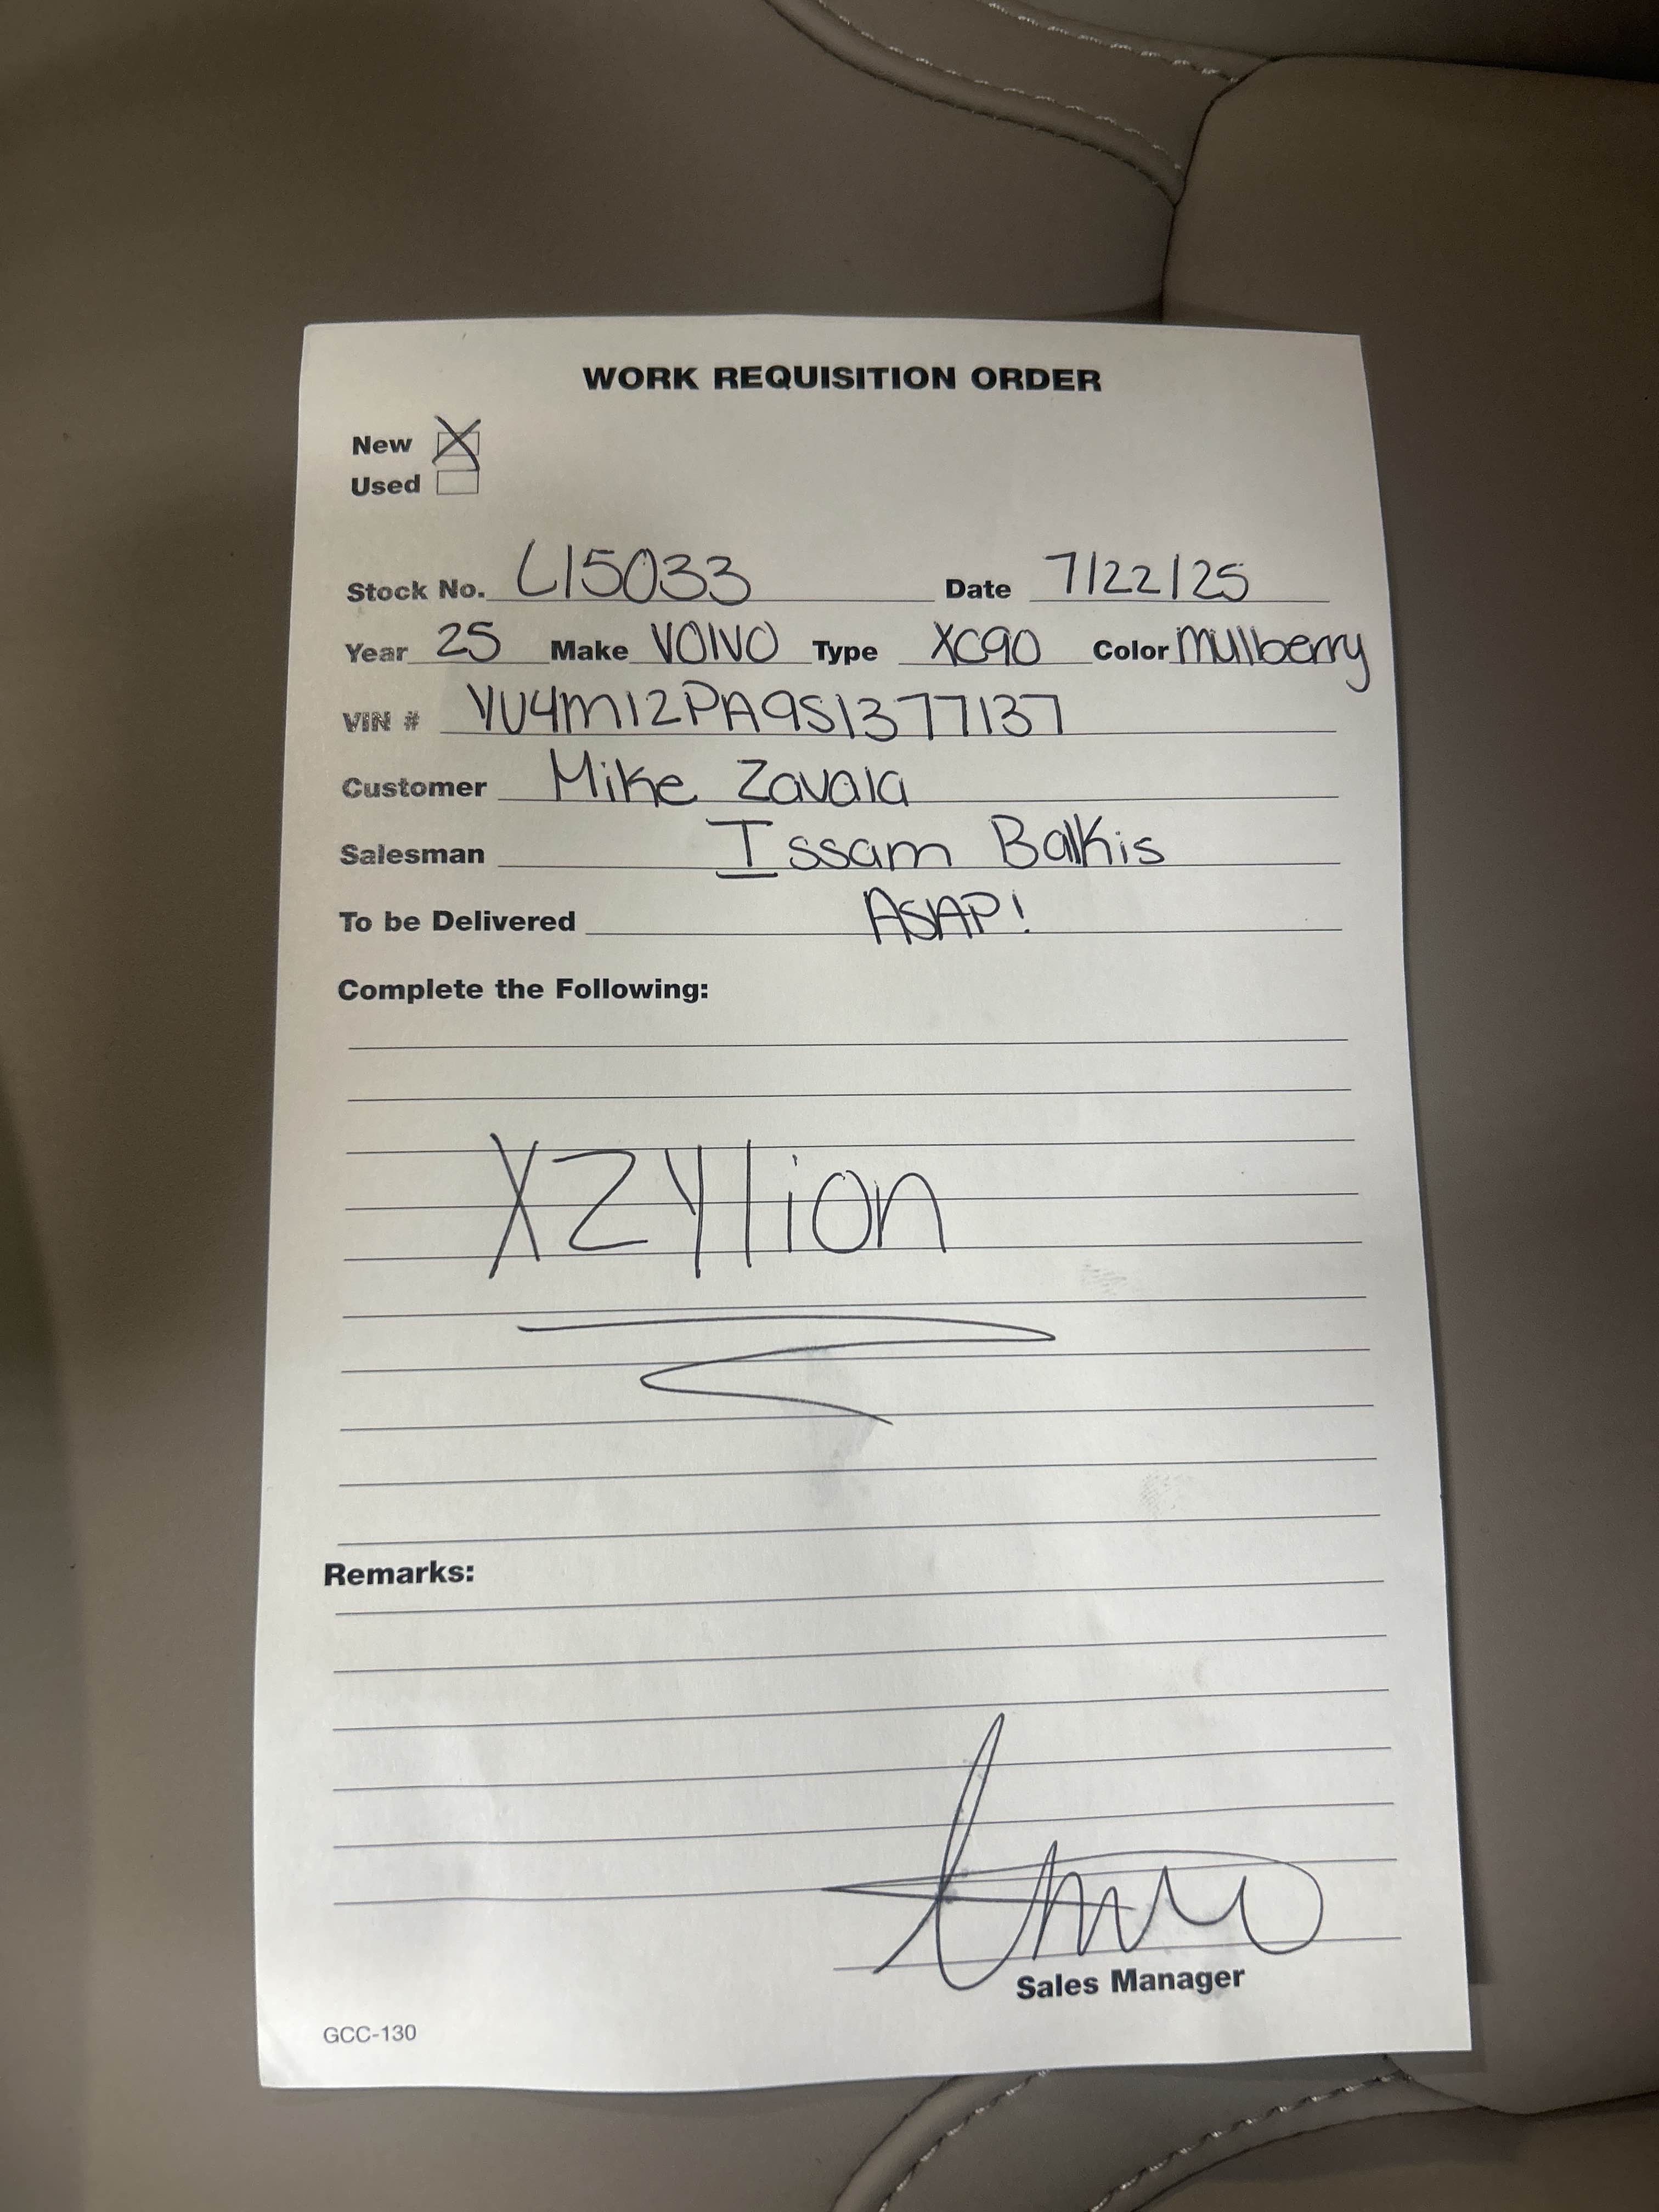 WORK REQUISITION ORDER
New X
Used
Stock No. L15033 Date 7/22/25
Year 25 Make VOlVO Type XC90 Color Mullberry
VIN # YV4M12PA9S1377137
Customer Mike Zavala
Salesman Issam Balkis
To be Delivered ASAP!
Complete the Following:
XZYlion
Remarks:
Sales Manager
GCC-130